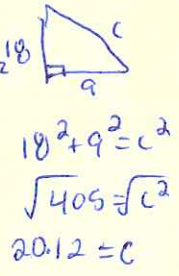 18
2
c
9
18² + 9² = c²
√405 = √c²
20.12 = c